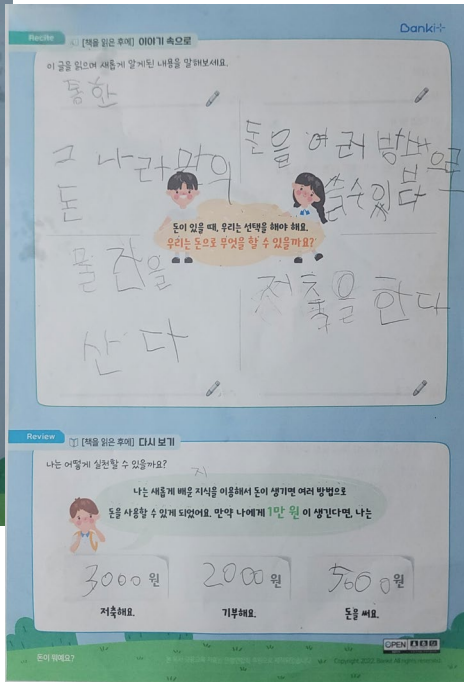 Banki+
Recite [책을 읽은 후에] 이야기 속으로
이 글을 읽으며 새롭게 알게된 내용을 말해보세요.
통화
그 나라만의
돈
돈을 여러 방법으로
쓸수있다
돈이 있을 때, 우리는 선택을 해야 해요.
우리는 돈으로 무엇을 할 수 있을까요?
물건을
산다
저축을 한다
Review [책을 읽은 후에] 다시 보기
나는 어떻게 실천할 수 있을까요?
지
나는 새롭게 배운 지식을 이용해서 돈이 생기면 여러 방법으로
돈을 사용할 수 있게 되었어요. 만약 나에게 1만 원이 생긴다면, 나는
3000원 2000원 5000원
저축해요. 기부해요. 돈을 써요.
OPEN
돈이 뭐예요?